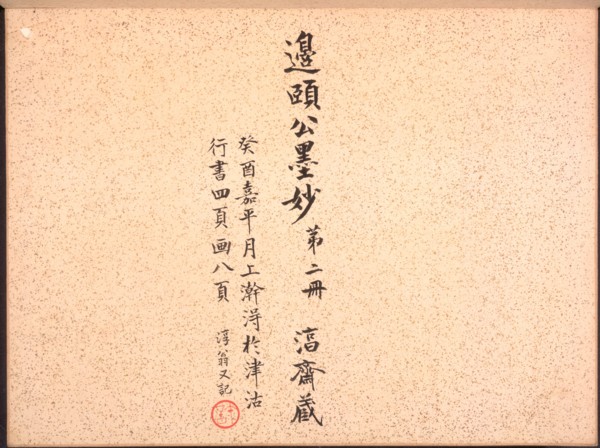 邊頤公墨妙 第二冊 㵭齋蔵
癸酉嘉平月上澣淂於津沽
行書四頁画八頁 淳翁又記